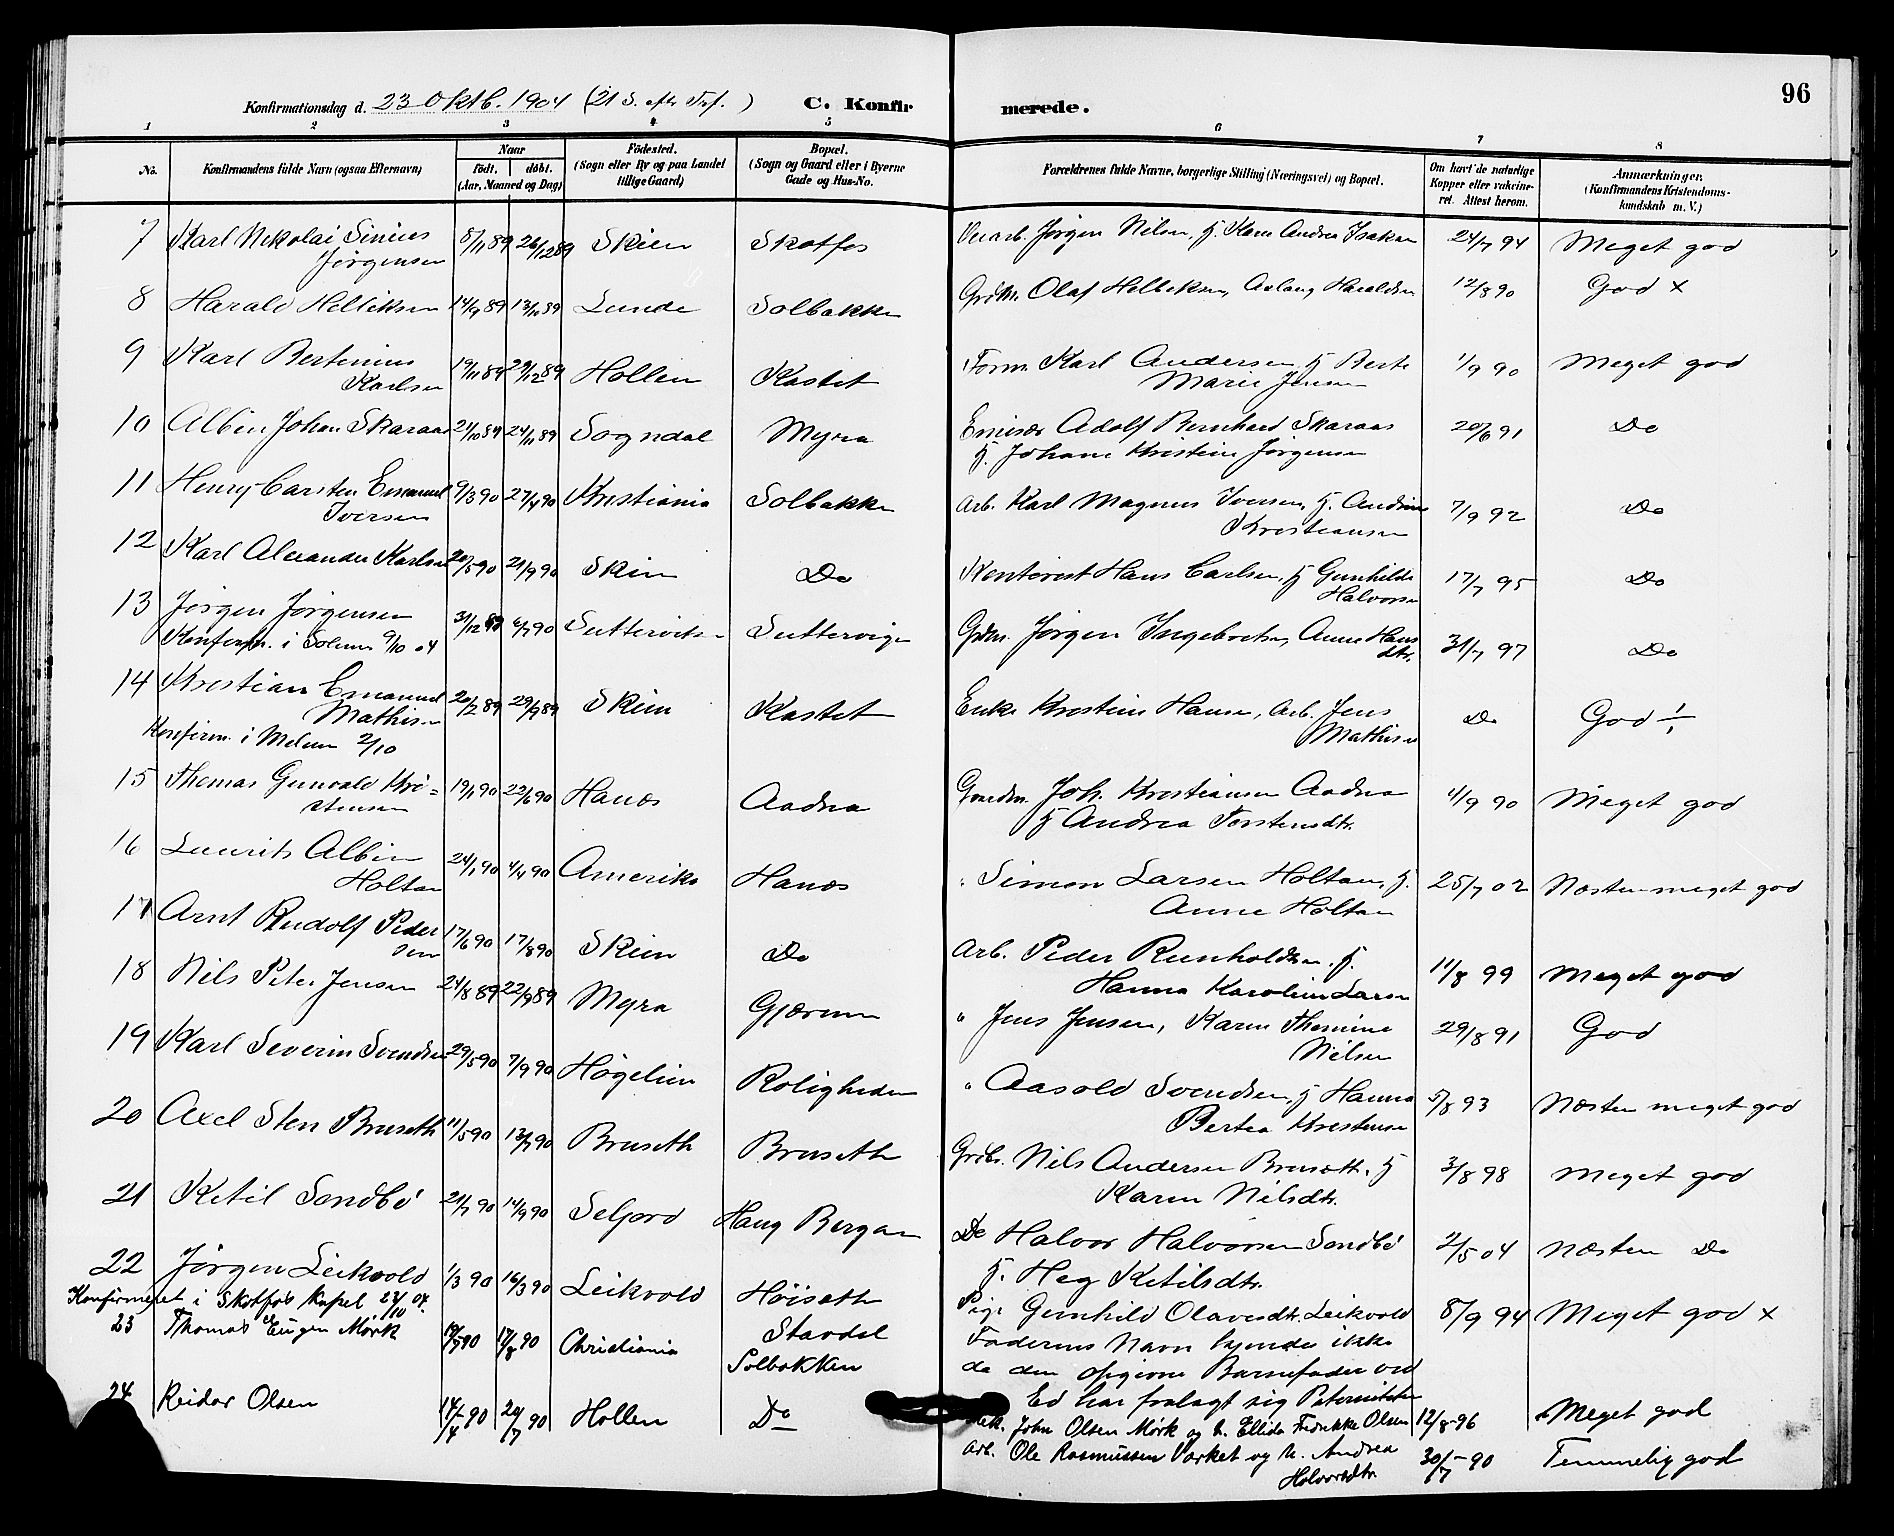 96
Konfirmationsdag d. 23 Oktb. 1904 (21 S. efter Tref.) C. Konfirmerede.
1 2 3 4 5 6 7 8
No. Konfirmandens fulde Navn (ogsaa Efternavn) Naar født. døbt. (Aar, Maaned og Dag) Fødested. (Sogn eller By og paa Landet tillige Gaard) Bopæl. (Sogn og Gaard eller i Byerne Gade og Hus-No. Forældrenes fulde Navne, borgerlige Stilling (Næringsvei) og Bopæl. Om havt de naturlige Kopper eller vakcineret. Attest herom. Anmærkninger. (Konfirmandens Kristendomskundskab m. V.)
7 Karl Nikolai Sinius Jørgensen 8/11 89 26/12 89 Skien Skotfos Jørgen Nilsen, H. Karen Andrea Isaksen 24/7 94 Meget god
8 Harald Helliksen 14/9 89 13/10 89 Lunde Solbakken Grdbr. Olaf Helliksen, Aslaug Haraldsen 12/8 90 God x
9 Karl Bertinius Karlsen 19/11 89 29/12 89 Hollen Kastet Form. Karl Andersen, H Berte Marie Jensen 1/9 90 Meget god
10 Albin Johan Skaraas 21/10 89 24/11 89 Sogndal Myra Emisær Adolf Bernhard Skaraas H. Johane Kristine Jørgensen 20/6 91 Do
11 Henry Carsten Emanuel Iversen 9/3 90 27/4 90 Kristiania Solbakken Arb. Karl Magnus Iversen, H. Andrine Kristiansen 7/9 92 Do
12 Karl Alexander Karlsen 20/5 90 21/9 90 Skien Do Kontorist Hans Carlsen, H Gunhilde Halvorsen 17/7 95 Do
13 Jørgen Jørgensen 31/12 89 6/7 90 Suttervigen Suttervigen Grdm. Jørgen Ingebretsen, Anne Hansdtr. 31/7 97 Do
Konfirm. i Solum 9/10 04
14 Kristian Emanuel Mathisen 20/2 89 29/9 89 Skien Kastet Enke Kristine Hansen, Arb. Jens Mathisen Do God
Konfirm. i Melum 2/10
15 Thomas Gunvald Kristensen 19/1 90 22/6 90 Hanæs Aadna Gaardm. Joh. Kristiansen Aadna H Andrea Torstensdtr. 4/9 90 Meget god
16 Laurits Albin Holtan 24/1 90 4/4 90 Amerika Hanæs " Simon Larsen Holtan, H. Anne Holtan 25/7 02 Næsten meget god
17 Arnt Rudolf Pedersen 17/6 90 17/8 90 Skien Do Arb. Peder Reinholdsen. H. Hanna Karoline Larsen 11/8 99 Meget god
18 Nils Peter Jensen 24/8 89 22/9 89 Myra Gjærum " Jens Jensen, Karen Thomine Nilsen 29/8 91 God
19 Karl Severin Svendsen 29/5 90 7/9 90 Høgelien Roligheden " Aasold Svendsen, H Hanna Bertea Kristensen 5/8 93 Næsten meget god
20 Axel Sten Bruseth 11/5 90 13/7 90 Bruseth Bruseth Grdbr. Nils Andersen Bruseth, H Karen Nilsdtr. 3/8 98 Meget god
21 Ketil Sandbø 21/7 90 14/9 90 Seljord Haug Bergan Do Halvor Halvorsen Sandbø H. Heg Ketilsdtr. 2/5 04 Næsten Do
22 Jørgen Leikvold 1/3 90 16/3 90 Leikvold Høiseth Pige Gunhild Olavesdtr. Leikvold 8/9 94 Meget god x
Konfirmeret i Skotfos Kapel 23/10 04. Faderens Navn kjendes ikke
da den opgivne Barnefader ved
Ed har fralagt sig Paterniteten
23 Thomas Eugen Mørk 19/7 90 17/8 90 Christiania Stavdal Solbakken John Olsen Mørk og H. Ellida Fredrikke Olsen 12/8-96 Meget god
24 Reidar Olsen 14/4 90 20/7 90 Hollen Do Arb. Ole Rasmussen Varket og H. Andrea Halvorsdtr. 30/7-90 Temmelig god